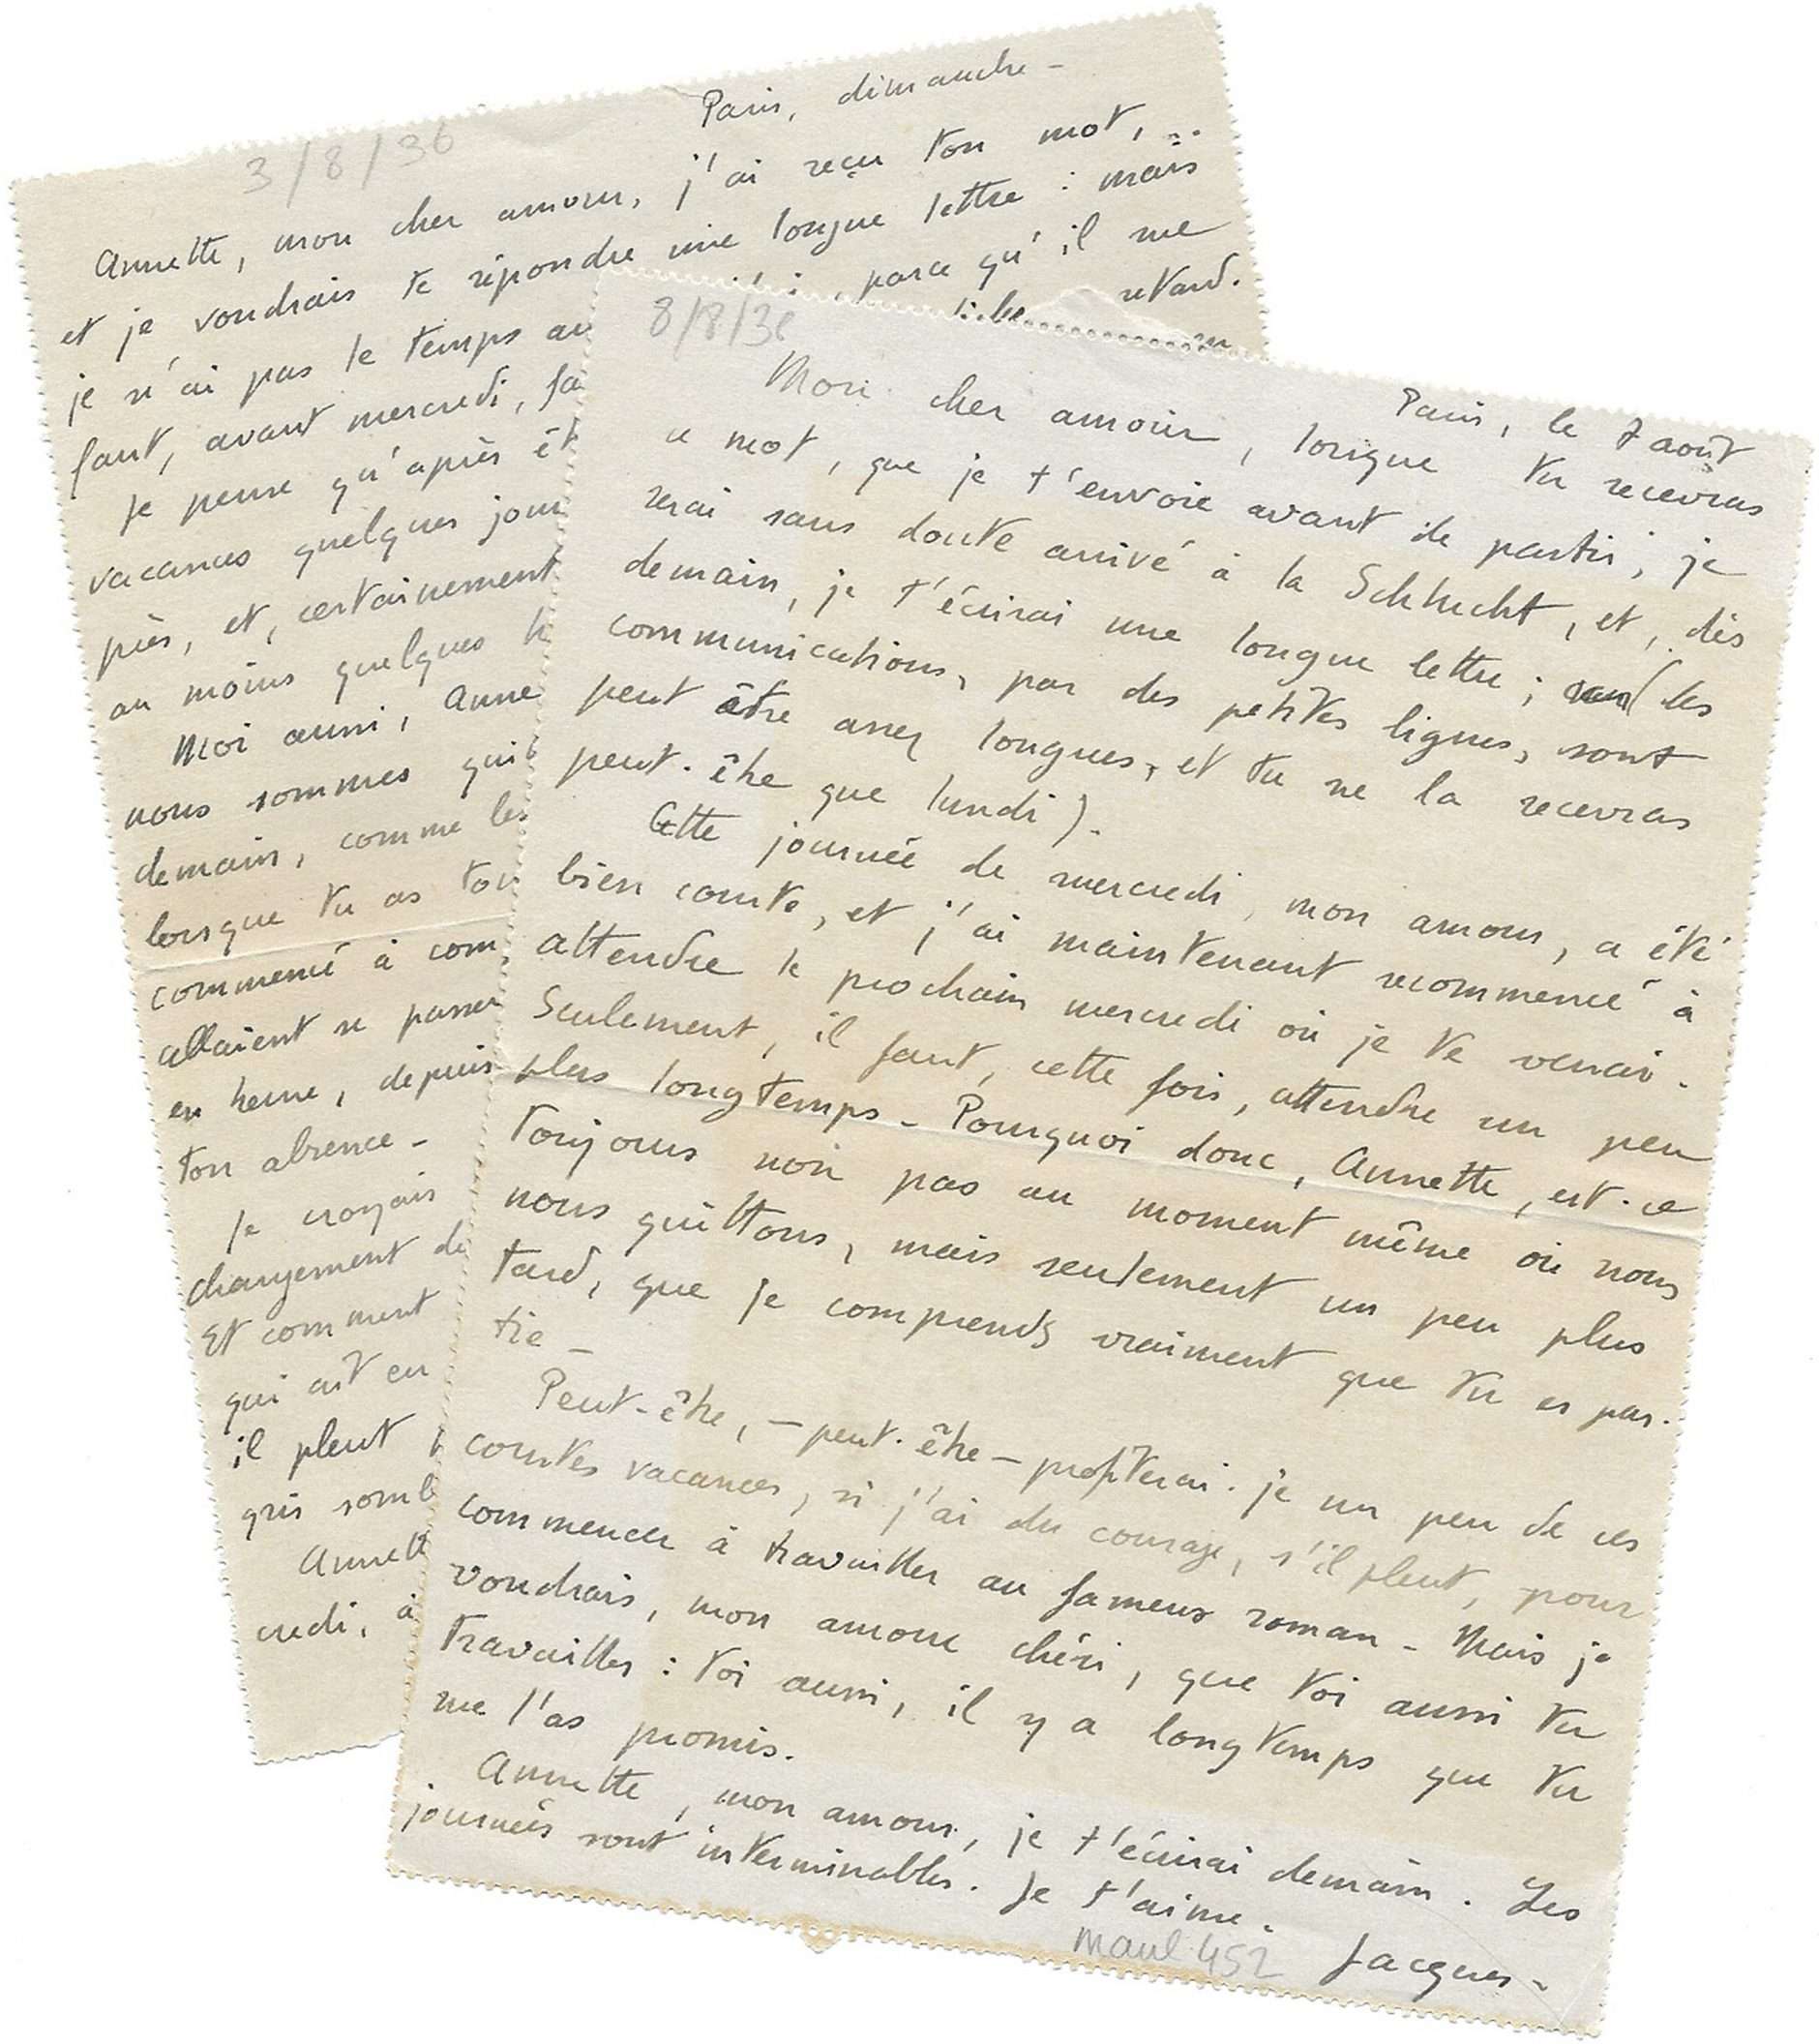 Paris, dimanche -
3/8/36
Annette, mon cher amour, j'ai reçu ton mot,
et je voudrais te répondre une longue lettre : mais
je n'ai pas le temps au parce qu'il me
faut, avant mercredi, retard.
Je pense qu'après êt
vacances quelques jour
près, et, certainement
au moins quelques h
Moi aussi, Anne
nous sommes quit
demain, comme les
lorsque tu as ton
commencé à com
allaient se passer
en heure, depuis
ton absence -
Je croyais
changement de
Et comment
qui ait eu
il pleut
gris somb
Annett
credi, à
8/8/36
Paris, le 7 août
Mon cher amour, lorsque tu recevras
ce mot, que je t'envoie avant de partir, je
serai sans doute arrivé à la Schlucht, et, dès
demain, je t'écrirai une longue lettre ; (les
communications, par des petites lignes, sont
peut être assez longues, et tu ne la recevras
peut-être que lundi).
Cette journée de mercredi, mon amour, a été
bien courte, et j'ai maintenant recommencé à
attendre le prochain mercredi où je te verrai.
Seulement, il faut, cette fois, attendre un peu
plus longtemps - Pourquoi donc, Annette, est-ce
toujours non pas au moment même où nous
nous quittons, mais seulement un peu plus
tard, que je comprends vraiment que tu es par-
tie -
Peut-être, - peut-être - profiterai-je un peu de ces
courtes vacances, si j'ai du courage, s'il pleut, pour
commencer à travailler au fameux roman - Mais je
voudrais, mon amour chéri, que toi aussi tu
travailles : toi aussi, il y a longtemps que tu
me l'as promis.
Annette, mon amour, je t'écrirai demain. Les
journées sont interminables. Je t'aime.
Jacques -
Maul 452